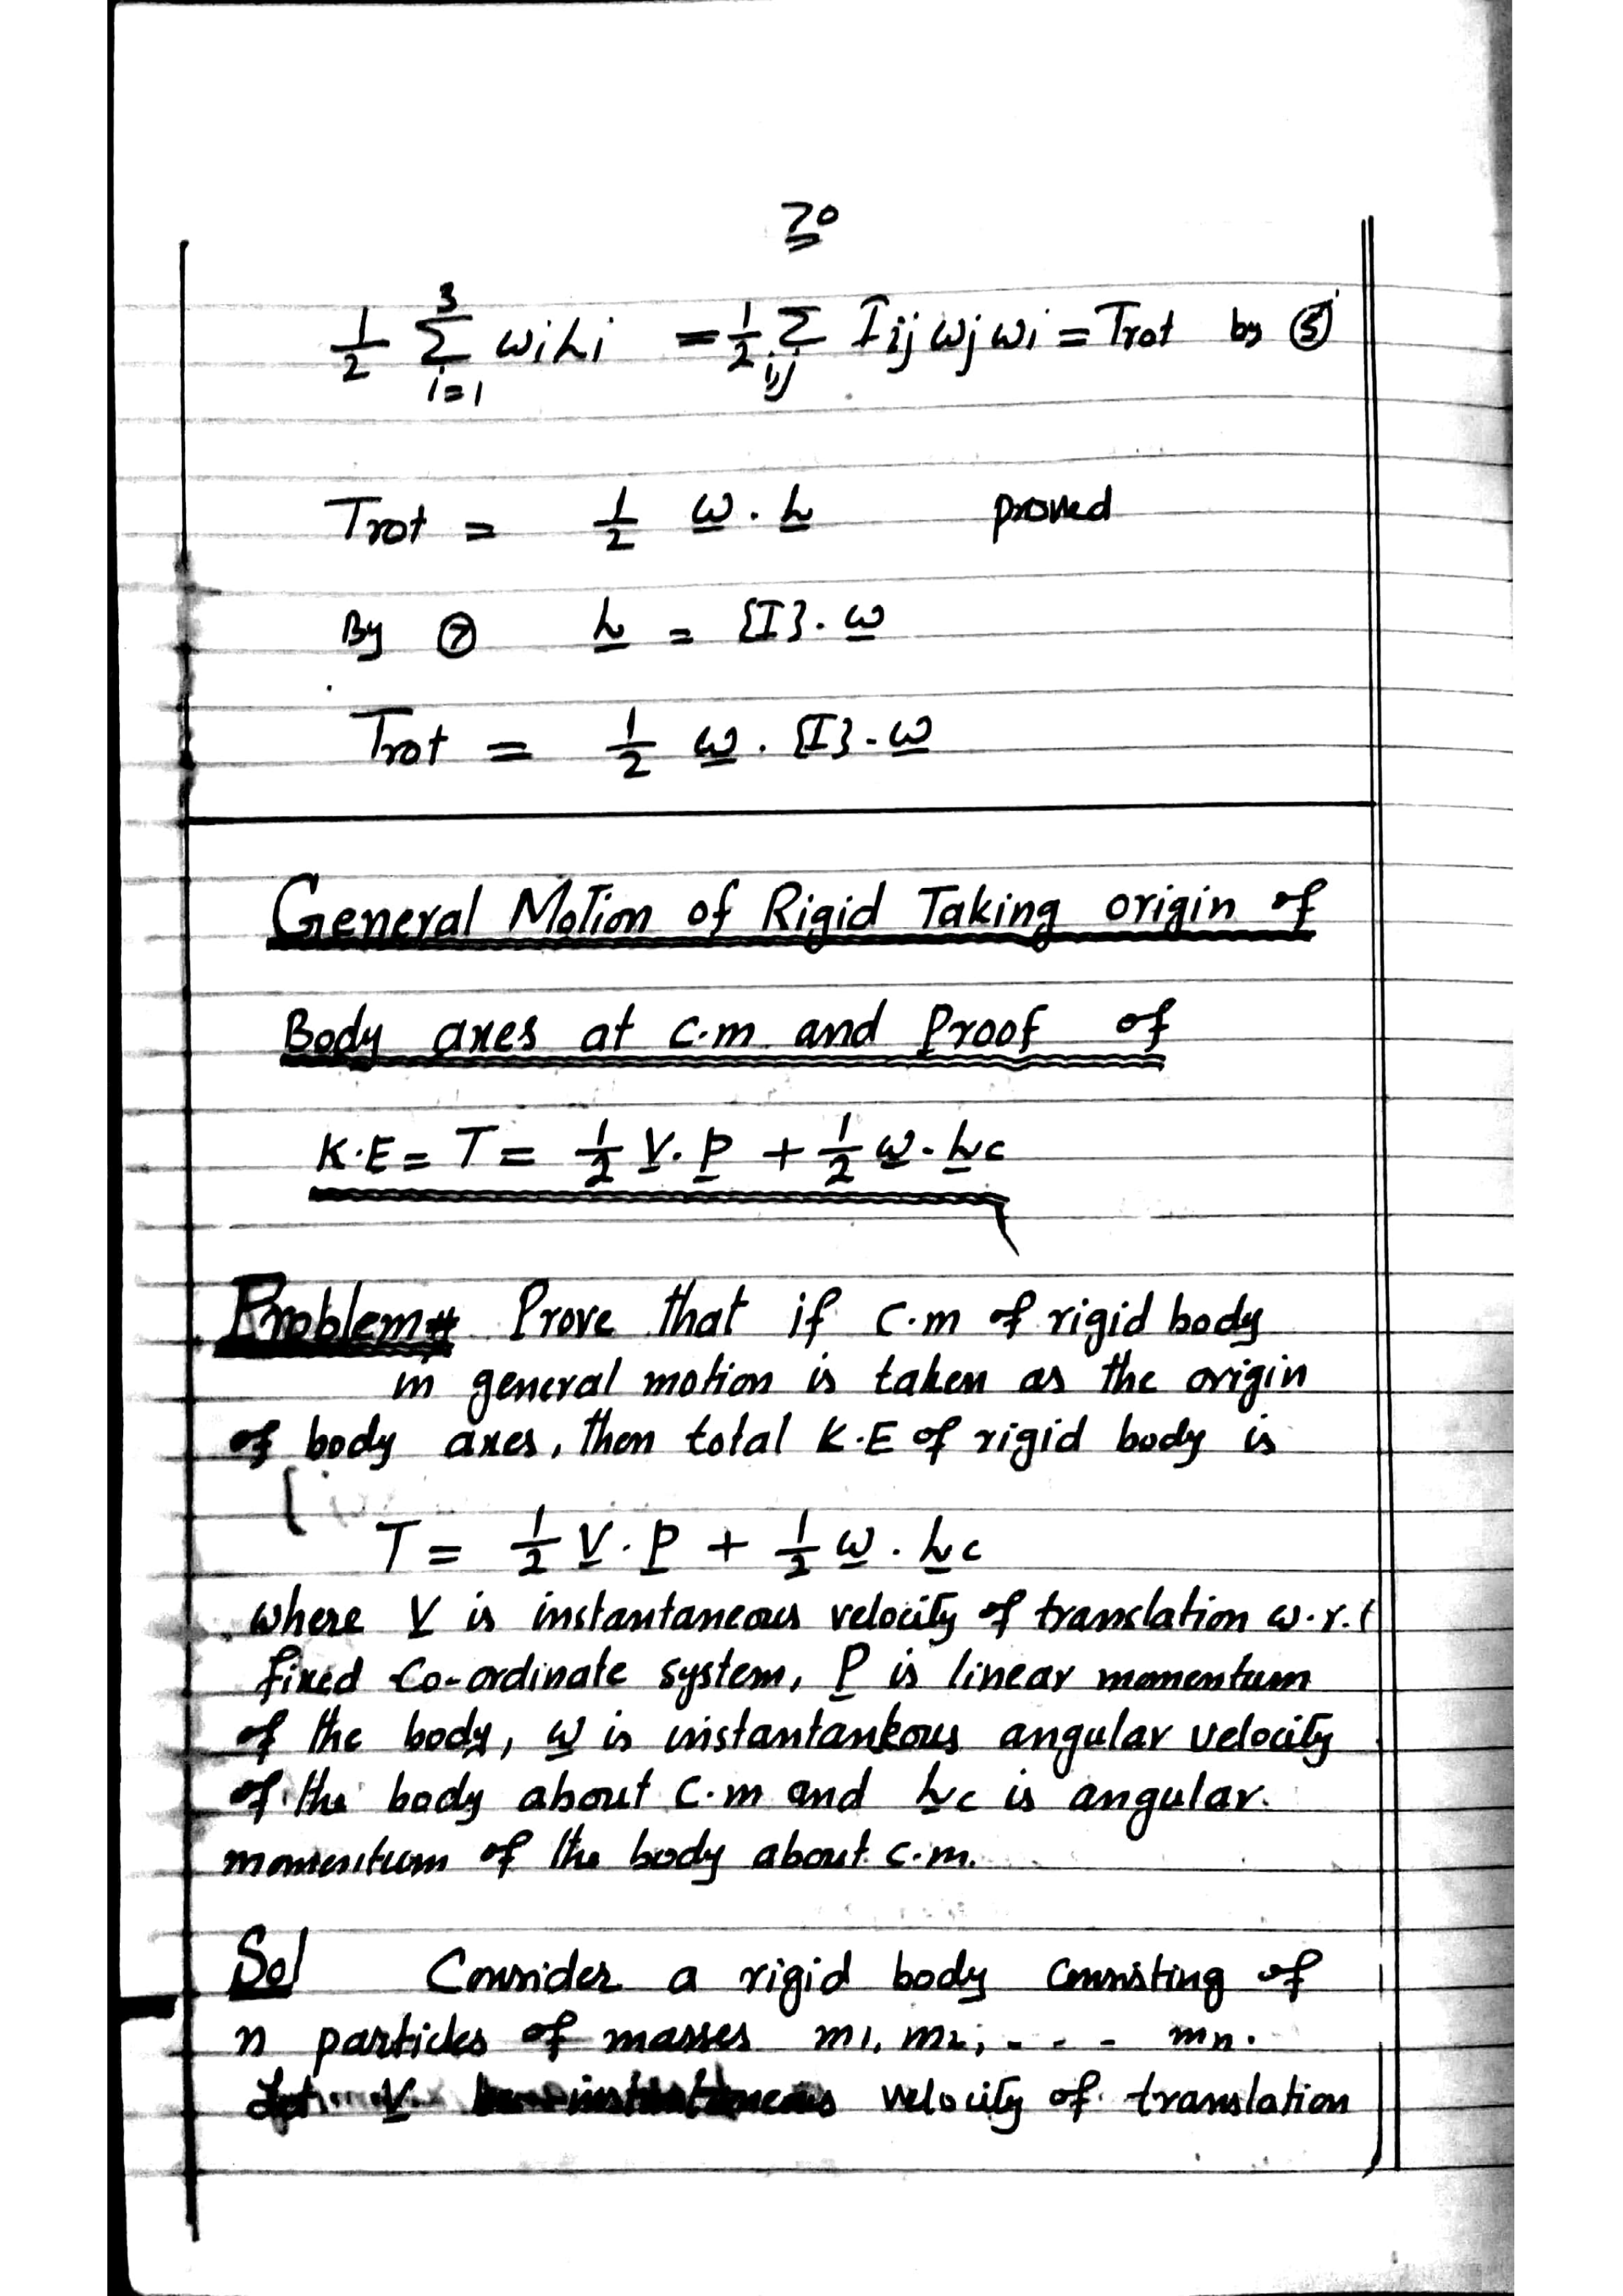 70
1/2 3Σi=1 ωihi = 1/2 Σi,j Iij ωj ωi = Trot by ⑤
Trot = 1/2 ω . h proved
By ⑦ h = {I} . ω
Trot = 1/2 ω . {I} . ω
General Motion of Rigid Taking origin of
Body axes at c.m and Proof of
K.E = T = 1/2 V . P + 1/2 ω . hc
Problem# Prove that if c.m of rigid body
in general motion is taken as the origin
of body axes, then total K.E of rigid body is
T = 1/2 V . P + 1/2 ω . hc
where V is instantaneous velocity of translation w.r.t
fixed Co-ordinate system, P is linear momentum
of the body, ω is instantankous angular velocity
of the body about c.m and hc is angular
momentum of the body about c.m.
Sol Consider a rigid body consisting of
n particles of masses m1, m2, - - - mn.
Let V be instantaneous velocity of translation